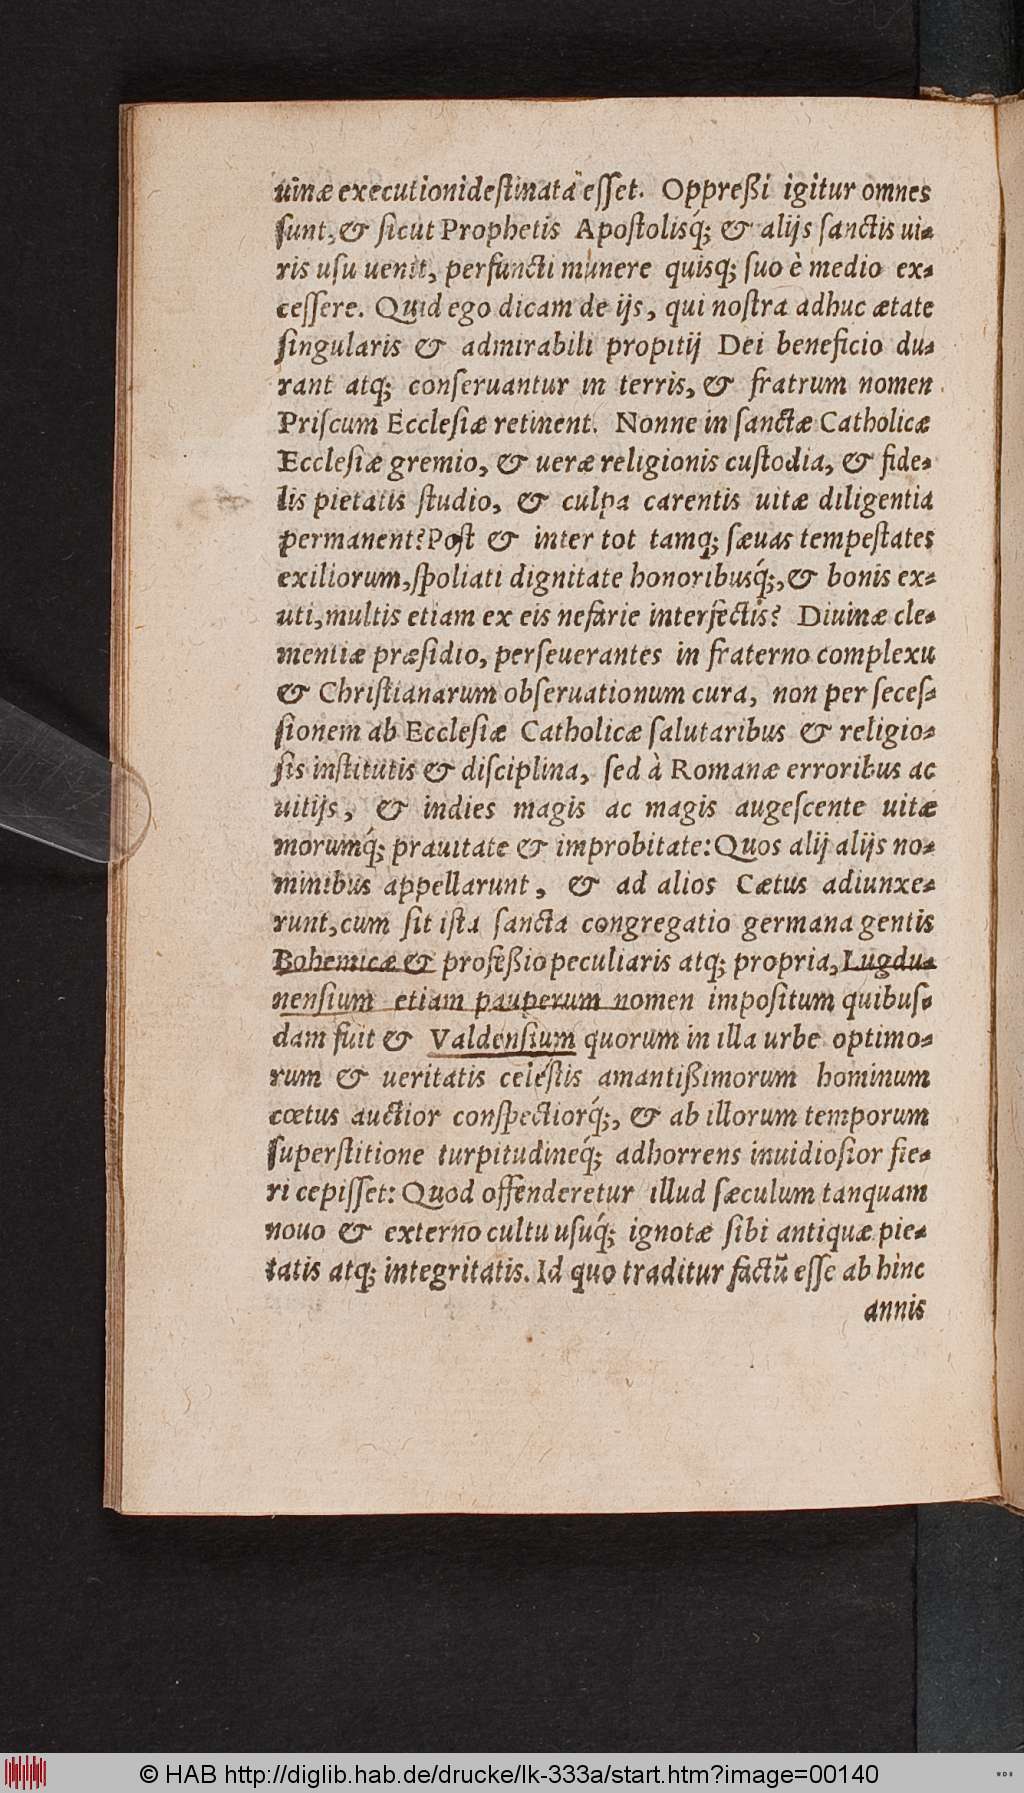 uinæ executioni destinata esset. Oppreßi igitur omnes
sunt, & sicut Prophetis Apostolisq́; & alijs sanctis ui-
ris usu uenit, perfuncti munere quisq; suo è medio ex-
cessere. Quid ego dicam de ijs, qui nostra adhuc ætate
singularis & admirabili propitij Dei beneficio du-
rant atq; conseruantur in terris, & fratrum nomen
Priscum Ecclesiæ retinent. Nonne in sanctæ Catholicæ
Ecclesiæ gremio, & ueræ religionis custodia, & fide-
lis pietatis studio, & culpa carentis uitæ diligentia
permanent? Post & inter tot tamq; sæuas tempestates
exiliorum, spoliati dignitate honoribusq́;, & bonis ex-
uti, multis etiam ex eis nefarie interfectis? Diuinæ cle-
mentiæ præsidio, perseuerantes in fraterno complexu
& Christianarum obseruationum cura, non per seces-
sionem ab Ecclesiæ Catholicæ salutaribus & religio-
sis institutis & disciplina, sed à Romanæ erroribus ac
uitijs, & indies magis ac magis augescente uitæ
morumq́; prauitate & improbitate: Quos alij alijs no-
minibus appellarunt, & ad alios Cætus adiunxe-
runt, cum sit ista sancta congregatio germana gentis
Bohemicæ & profeßio peculiaris atq; propria, Lugdu-
nensium etiam pauperum nomen impositum quibus-
dam fuit & Valdensium quorum in illa urbe optimo-
rum & ueritatis celestis amantißimorum hominum
cœtus auctior conspectiorq́;, & ab illorum temporum
superstitione turpitudineq́; adhorrens inuidiosior fie-
ri cepisset: Quod offenderetur illud sæculum tanquam
nouo & externo cultu usuq́; ignotæ sibi antiquæ pie-
tatis atq; integritatis. Id quo traditur factũ esse ab hinc
annis
© HAB http://diglib.hab.de/drucke/lk-333a/start.htm?image=00140